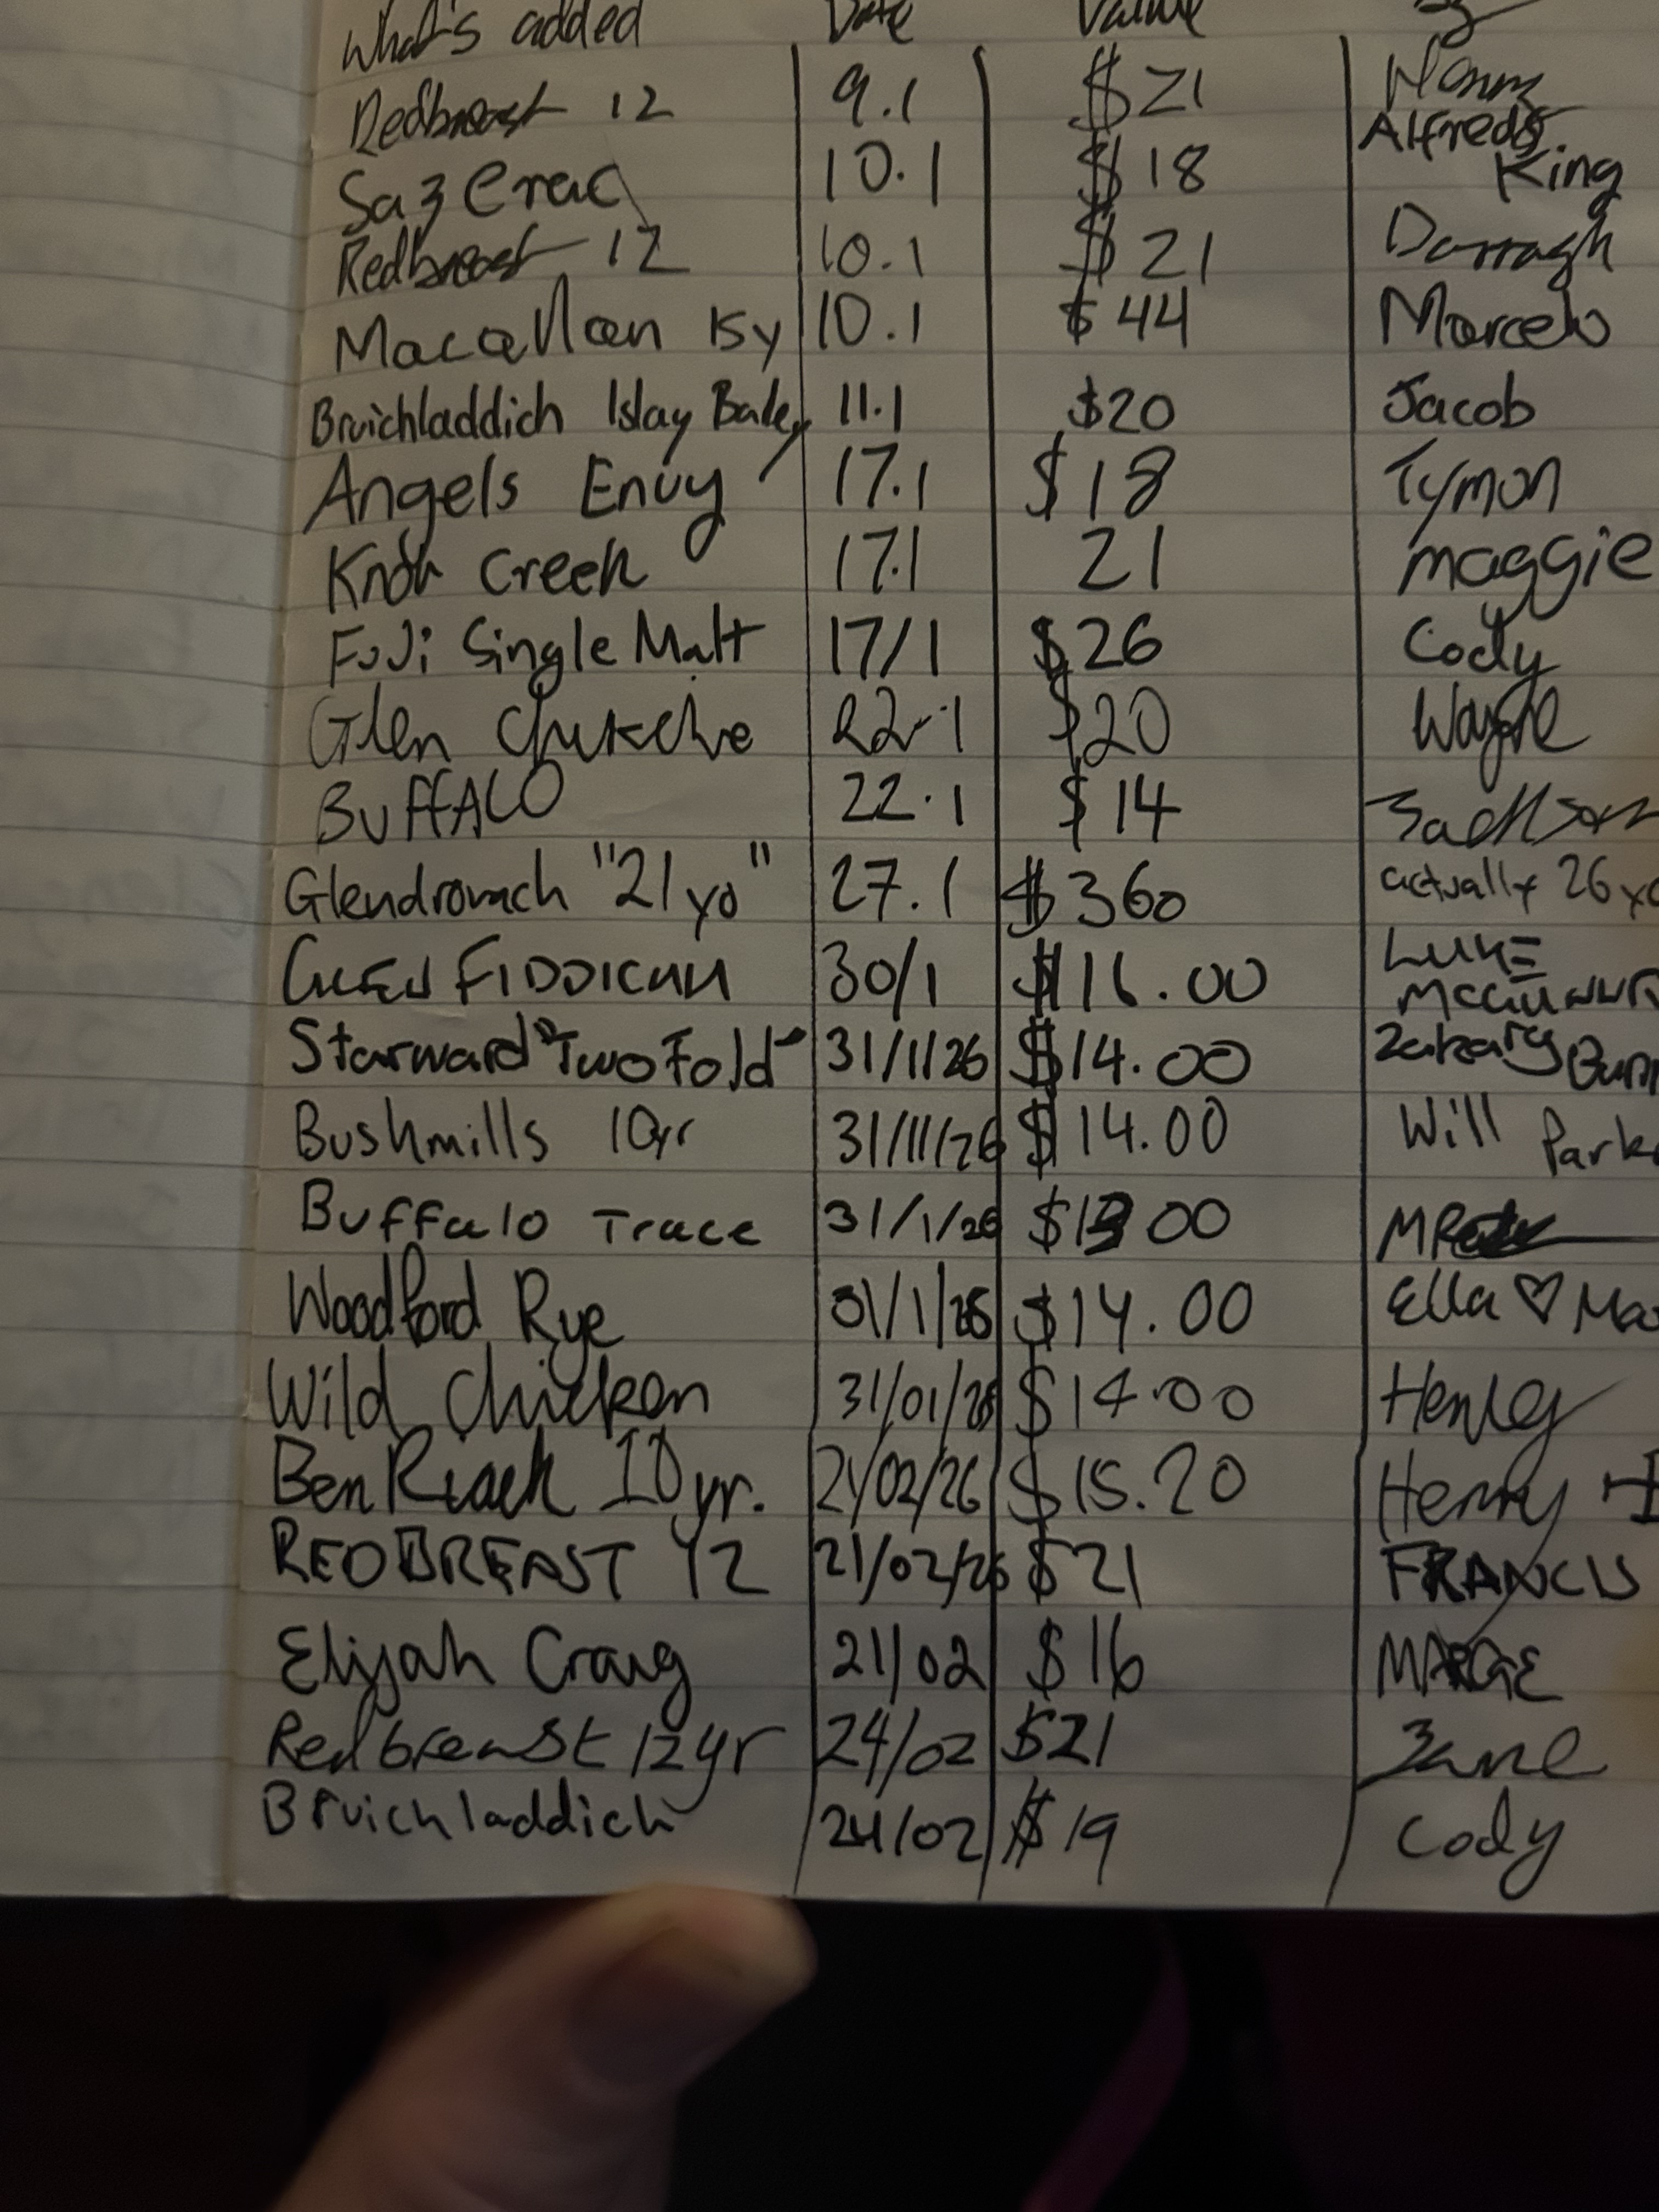 What's added Date Value
Redbreast 12 9.1 $21
Sazerac 10.1 $18 Alfredo King
Redbreast 12 10.1 $21 Darragh
Macallan 15y 10.1 $44 Marcelo
Bruichladdich Islay 11.1 $20 Jacob
Angels Envy 17.1 $18 Tymon
Knob Creek 17.1 21 maggie
Fuji Single Malt 17/1 $26 Cody
Glen 22.1 $20 Wayne
BUFFALO 22.1 $14
Glendronach "21yo" 27.1 $360 actually 26 yo
30/1 $16.00 LUKE
Starward "Two Fold" 31/1/26 $14.00
Bushmills 10yr 31/11/26 $14.00 Will
Buffalo Trace 31/1/26 $13 00
Woodford Rye 31/1/26 $14.00 Ella ♡
Wild Chicken 31/01/26 $14.00 Henley
BenRiach 10yr. 21/02/26 $15.20 Henry
REDBREAST 12 21/02/26 $21 FRANCIS
Elijah Craig 21/02 $16 MARGE
Redbreast 12yr 24/02 $21 Zane
Bruichladdich 24/02 $19 Cody